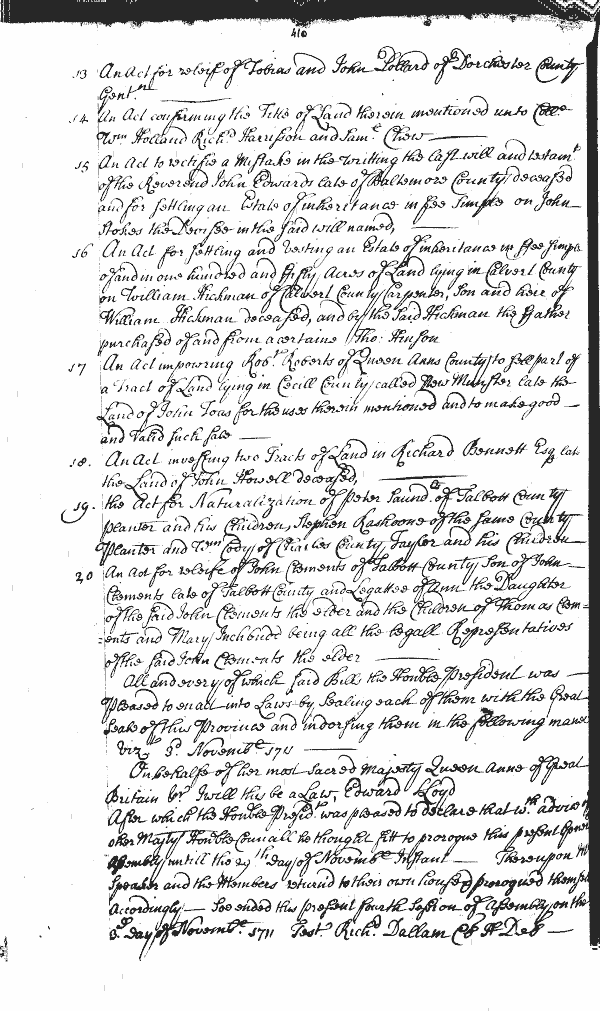 410
13 An Act for releif of Tobias and John Pollard of Dorchester County
Gent.n
14 An Act confirming the Title of Land therein mentioned unto Coll.o
Wm Holland Rich.d Harrison and Sam.l Chew
15 An Act to rectifie a Mistake in the writing the last will and testam.t
of the Reverend John Edwards late of Baltemore County, deceased
and for settling an Estate of inheritance in ffee Simple on John
Stokes the Devisee in the said will named,
16 An Act for settling and vesting an Estate of inheritance in ffee simple
of and in one hundred and fifty Acres of Land lying in Calvert County
on William Hickman of Calvert County Carpenter, Son and heir of
William Hickman deceased, and by the said Hickman the ffather
purchased of and from a certaine Tho: Hinson
17 An Act impowring Rob.t Roberts of Queen Anns County to sell part of
a Tract of Land lying in Cecill County, called New Munster late the
Land of John Toas for the uses therein mentioned and to make good
and Valid such sale
18. An Act investing two Tracts of Land in Richard Bennett Esq late
the Land of John Howell deceased,
19. the Act for Naturalization of Peter Saund.rs of Talbott County
planter and his Children, Stephen Rashoone of the same County
Planter and Wm Cody of Charles County Taylor and his Children
20 An Act for releife of John Clements of Talbott County Son of John
Clements late of Talbott County and Legattee of Ann the Daughter
of the said John Clements the elder and the Children of Thomas Clem-
=ents and Mary Inchbudt being all the legall Representatives
of the said John Clements the elder
All and every of which said Bills the Honble President was
Pleased to enact into Laws by Sealing each of them with the Great
Seale of this Province and indorsing them in the following maner
Viz.t 3.d Novemb.r 1711
On behalfe of her most Sacred Majesty Queen Anne of Great
Britain &c. I will this be a Law, Edward Lloyd
After which the Honble Presid.t was pleased to declare that w.th advice of
other Majty Honble Councill he thought fitt to prorogue this present Gener
Assembly untill the 29th day of Novemb.r Instant Thereupon the
Speaker and the Members return'd to their own house & prorogued themsel
Accordingly Soe ended this present fourth Session of Assembly on the
3.d day of Novemb.r 1711 Test Rich.d Dallam Cl H Del